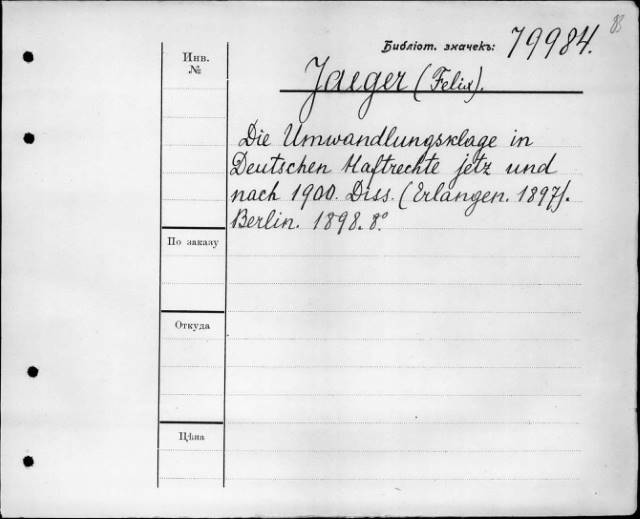 83
Библіот. значекъ: 79984.
Инв.
№
Jaeger (Felix).
Die Umwandlungsklage in
Deutschen Haftrechte jetz und
nach 1900. Diss. (Erlangen. 1897).
Berlin. 1898. 8°
По заказу
Откуда
Цѣна